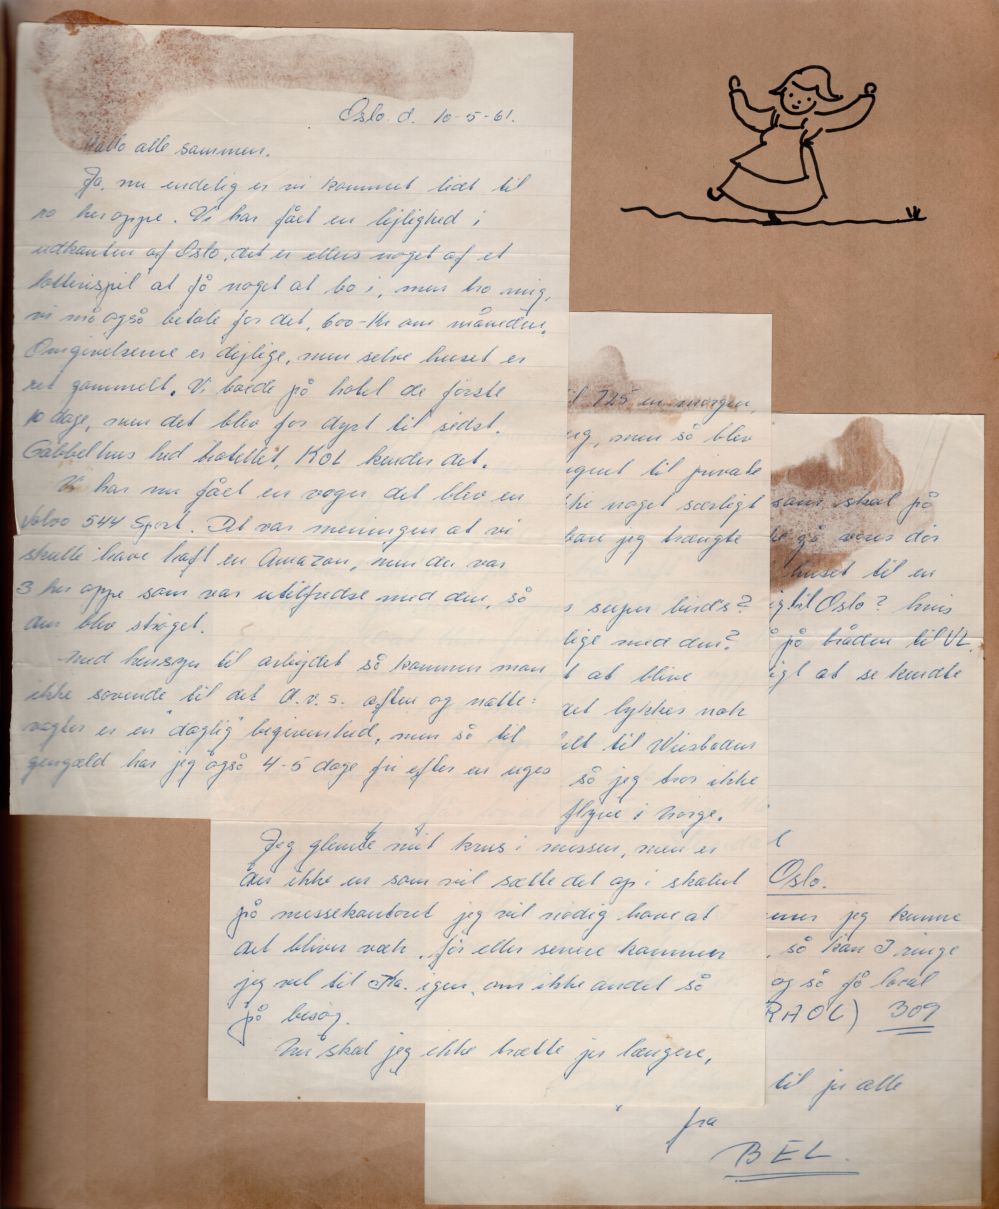 Oslo. d. 10-5-61.
Hallo alle sammen.
Ja, nu endelig er vi kommet lidt til
ro heroppe. Vi har fået en lejlighed i
udkanten af Oslo, det er ellers noget af et
lotterispil at få noget at bo i, men tro mig,
vi må også betale for det, 600-Kr om måneden.
Omgivelserne er dejlige, men selve huset er
ret gammelt. Vi boede på hotel de første
10 dage, men det blev for dyrt til sidst.
Gabbelhus hed hotellet, KOL kender det.
Vi har nu fået en vogn det blev en
Volvo 544 Sport. Det var meningen at vi
skulle have haft en Amazon, men der var
3 her oppe som var utilfredse med den, så
den blev strøget.
Med hensyn til arbejdet så kommer man
ikke sovende til det d.v.s. aften og natte=
vagter er en "daglig" begivenhed, men så til
gengæld har jeg også 4-5 dage fri efter en uges
til 725 en morgen,
, men så blev
til private
noget særligt
bare jeg trængte
super bird's?
lige med den?
at blive
det lykkes nok
til Wiesbaden
så jeg tror ikke
flyve i Norge.
Jeg glemte mit krus i messen, men er
der ikke en som vil sætte det op i skabet
på messekontoret jeg vil nødig have at
det bliver væk, før eller senere kommer
jeg vel til Ka. igen, om ikke andet så
på besøg.
Nu skal jeg ikke trætte jer længere,
som skal på
gå vores dør
huset til en
til Oslo? hvis
på tråden til VL.
at se kendte
Oslo.
jeg kunne
, så kan I ringe
og så få local
(RAOC) 309
til jer alle
fra
BEL.